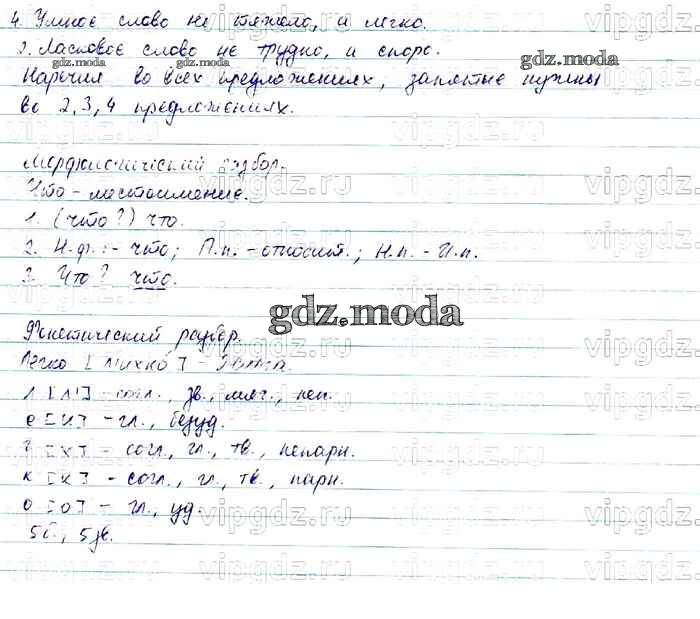 4. Умное слово не тяжело, а легко.
2. Ласковое слово не трудно, и споро.
gdz.moda
Наречия во всех предложениях, запятые нужны
во 2, 3, 4 предложениях.
Морфологический разбор.
Что - местоимение.
1. (что?) что.
2. Н.ф.: - что; П.п. - относит.; Н.п. - И.п.
3. Что? что.
gdz.moda
Фонетический разбор.
Легко [л'ихко́] -
л [л'] - согл., зв., мяг., неп.
е [и] - гл., безуд.
г [х] - согл., гл., тв., непарн.
к [к] - согл., гл., тв., парн.
о [о] - гл., уд.
5 б., 5 зв.
vipgdz.ru